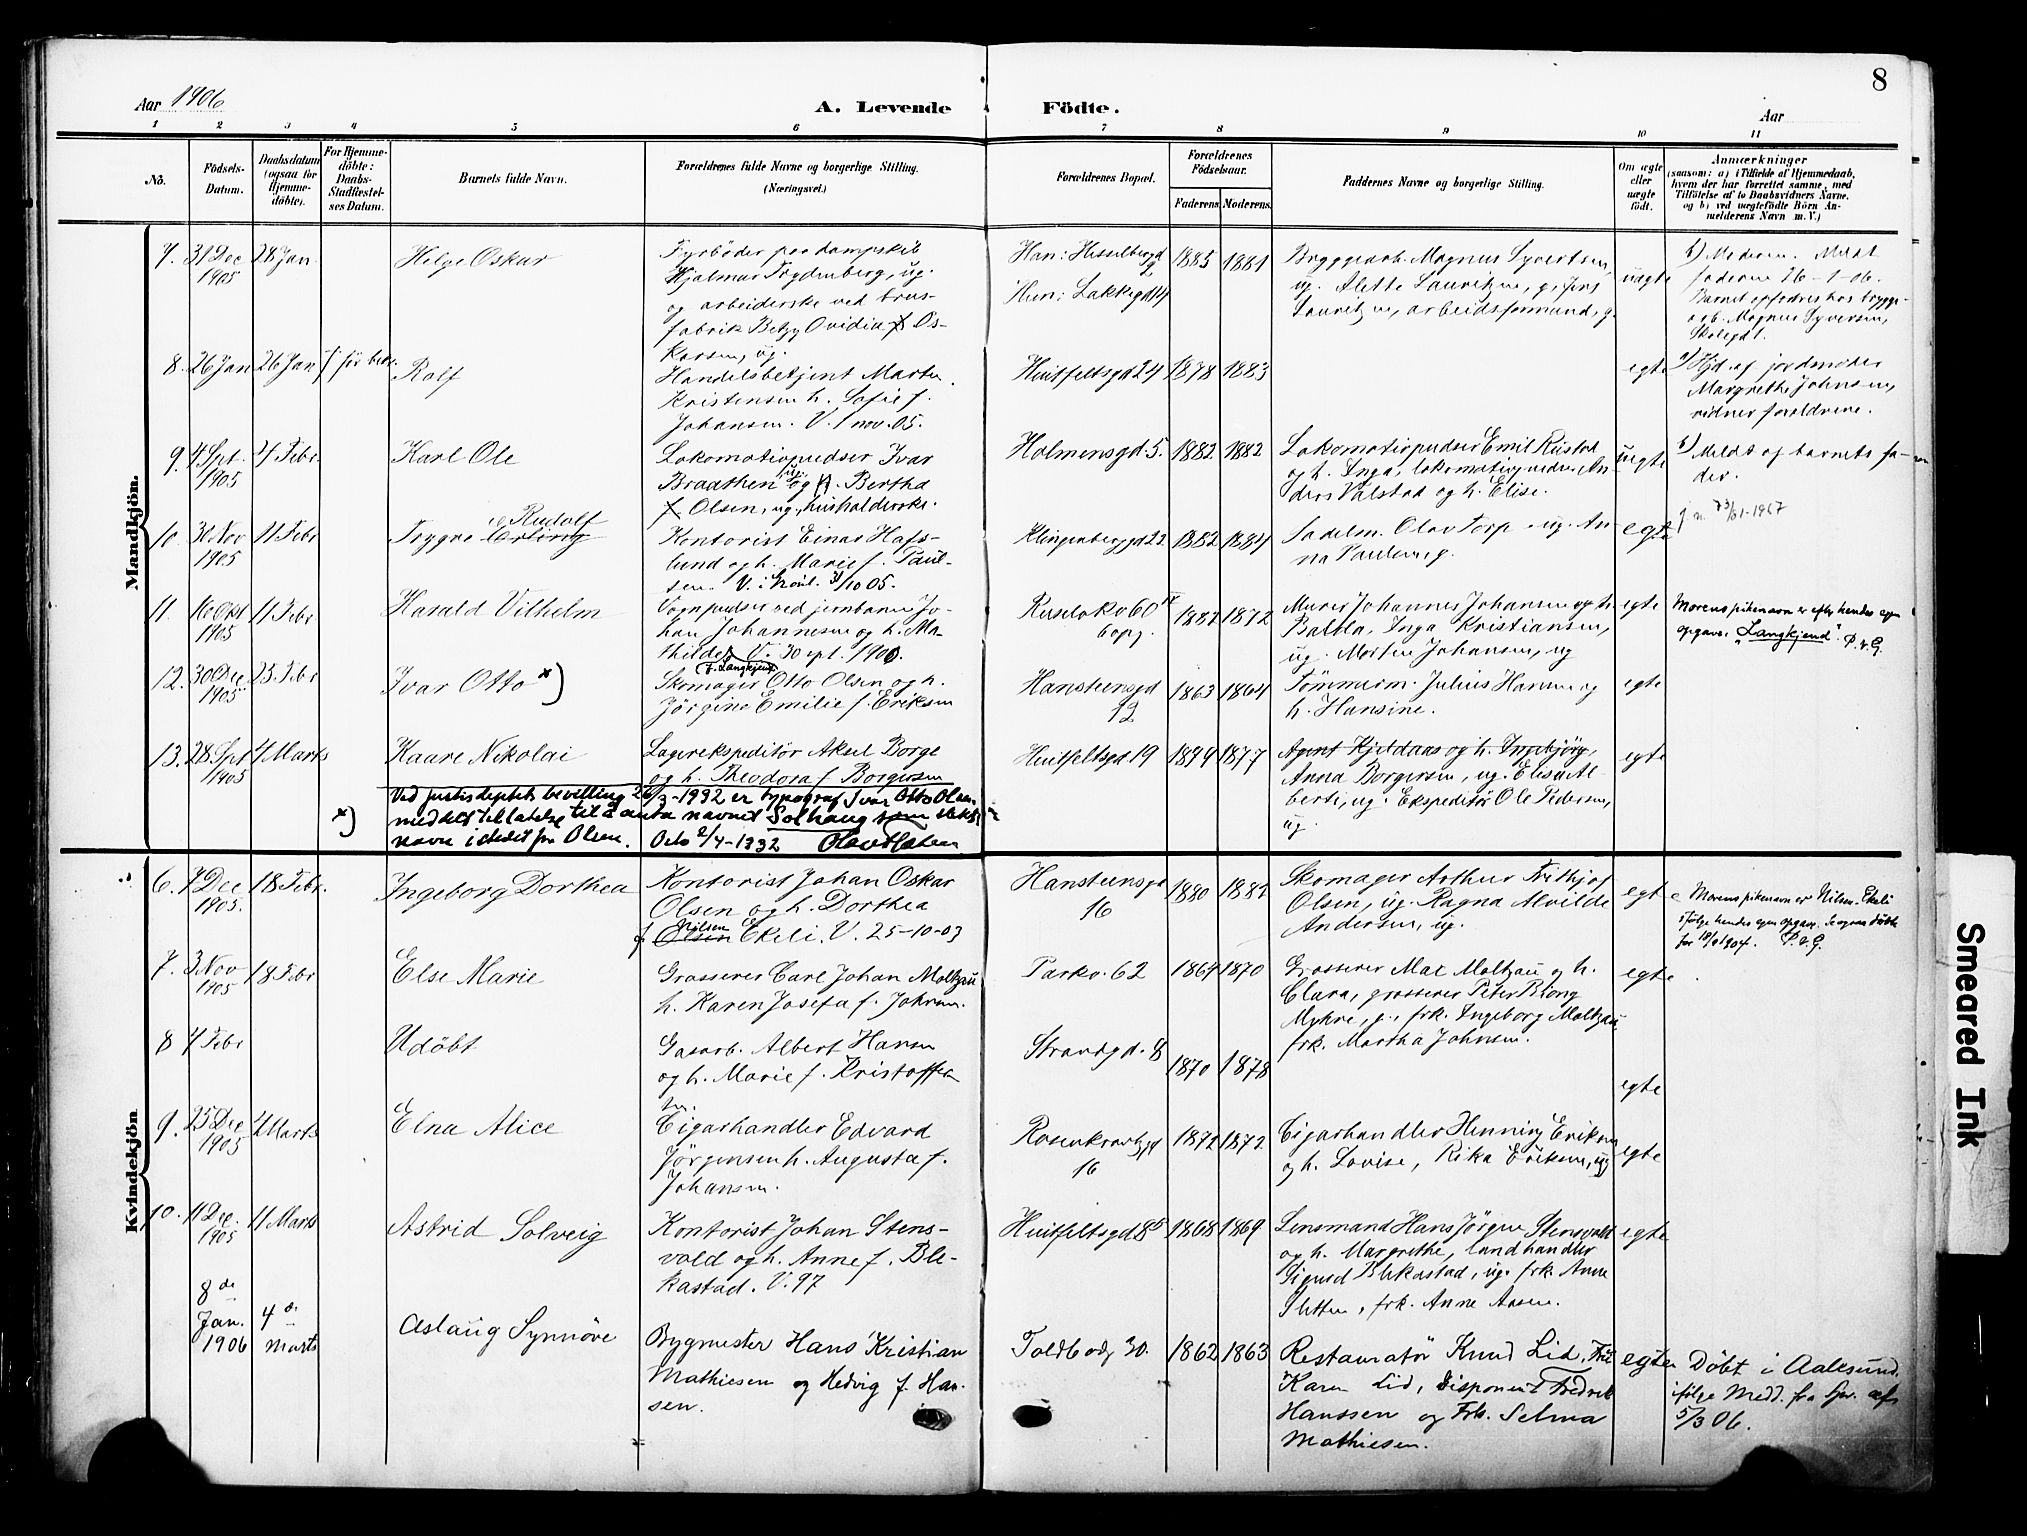 8
Aar 1906
A. Levende Födte.
Aar
1 2 3 4 5 6 7 8 9 10 11
No.
Födsels-
Datum.
Daabsdatum
(ogsaa for
Hjemme-
döbte).
For Hjemme-
döbte:
Daabs-
Stadfæstel-
ses Datum.
Barnets fulde Navn.
Forældrenes fulde Navne og borgerlige Stilling.
(Næringsvei.)
Forældrenes Bopæl.
Forældrenes
Födselsaar.
Faderens Moderens
Faddernes Navne og borgerlige Stilling.
Om ægte
eller
uægte
födt.
Anmærkninger
(saasom: a) i Tilfælde af Hjemmedaab,
hvem der har forrettet samme, med
Tilföielse af to Daabsvidners Navne.
og b) ved uægtefödte Börn An-
melderens Navn m. V.)
Mandkjön.
7. 31 Dec 1905
28 Jan
Helge Oskar
Fyrbøder paa dampskib
Hjalmar Frydenberg, ug.
og arbeiderske ved brus-
fabrik Betzy Ovidia f Os-
karsen, ug.
Han: Hesselberggd
Hun: Lakkegd 14
1885 1881
Bryggearb. Magnus Syvertsen,
ug. Alette Lauritzen, g. Jens
Lauritzen, arbeidsformand, g.
uægte
b) Moderen. Meldt
faderen 26-1-06.
Barnet opfødres hos brygge-
arb. Magnus Syversen,
Skolegd 1.
8. 26 Jan
26 Jan
Rolf
Handelsbetjent Martin
Kristensen h. Sofie f.
Johansen. V. 1 nov. 05.
Huitfeltsgd 24
1878 1883
egte
a) Hjd. af jordmoder
Margrethe Johnsen,
vidner forældrene.
9. 4 Spt. 1905
4 Febr.
Karl Ole
Lokomotivpudser Ivar
Braathen ug. og Bertha
Olsen, ug., husholderske.
Holmensgd. 5.
1882 1882
Lokomotivpudser Emil Rustad
og h. Inga, lokomotivpudser An-
ders Valstad og h. Elise.
uægte
b) Meldt af barnets fa-
der.
10. 30 Nov 1905
11 Febr
Trygve Erling
Rudolf
Kontorist Einar Hafs-
lund og h. Marie f. Paul-
sen.
Klingenberggd 22
1882 1884
Sadelm. Olav Torp, ug. An-
na Paulsen, g.
egte
11. 16 Okt 1905
11 Febr
Harald Vilhelm
Vognpudser ved jernbanen Jo-
han Johannesen og h. Ma-
thilde
f. Langkjend
Ruseløkv 60
1882 1872
Murer Johannes Johansen og h.
Balbla, Inga Kristiansen,
ug. Morten Johansen, ug
egte
Morens pikenavn er efter hendes egen
opgave: „Langkjend". P. v. G.
12. 30 Dec 1905
25 Febr
Ivar Otto x)
Skomager Otto Olsen og h.
Jørgine Emilie f. Eriksen
Hansteensgd
12
1863 1864
Tømmerm. Julius Hansen og
h. Hansine.
egte
13. 28 Spt 1905
4 Marts
Kaare Nikolai
Lagerekspeditør Aksel Borge
og h. Theodora f. Borgersen
Huitfeltsgd 19
1879 1877
Agent Kjeldaas og h. Ingebjørg,
Anna Borgersen, ug. Elise Al-
berti, ug. Ekspeditør Ole Pedersen,
ug.
egte
x) Ved justisdeptets bevilling 26/3-1932 er typograf Ivar Otto Olsen
meddelt tillatelse til å anta navnet Solhaug som slekts-
navn istedet for Olsen. Oslo 2/4-1932
Kvindekjön
6. 7 Dec 1905.
18 Febr.
Ingeborg Dorthea
Kontorist Johan Oskar
Olsen og h. Dorthea
f. Olsen Nilsen Ekeli. V. 25-10-03
Hansteensgd
16
1880 1882
Skomager Arthur Frithjof
Olsen, ug. Ragna Alvilde
Andersen, ug.
egte
Morens pikenavn er Nilsen-Ekeli
P. v. G.
7. 3 Nov 1905
18 Febr
Else Marie
Grosserer Carl Johan Moltzau
h. Karen Josefa f. Johnsen.
Parkv. 62
1864 1870
Grosserer Max Moltzau og h.
Clara, grosserer Peter Biong
Myhre, g., frk. Ingeborg Moltzau,
frk. Martha Johnsen.
egte
8 4 Febr
Udöbt
Gasarb. Albert Hansen
og h. Marie f. Kristoffer-
sen.
Strandgd. 8
1870 1878
egte
9. 25 Dec 1905
4 Marts
Elna Alice
Cigarhandler Edvard
Jørgensen h. Augusta f.
Johansen.
Rosenkrantzgd
16
1872 1872.
Cigarhandler Henning Eriksen
og h. Lovise, Rika Eriksen, ug
egte
10. 11 Dec. 1905
11 Marts
Astrid Solveig
Kontorist Johan Stens-
vold og h. Anne f. Ble-
kastad. V. 97
Huitfeltsgd 8
1868 1869
Lensmand Hans Jørgen Stensvold
og h. Margrethe, landhandler
Sigurd Blekastad, ug. frk. Anne
Sletten, frk. Anne Aasen.
egte
8de Jan. 1906
4de Marts
Aslaug Synnøve
Bygmester Hans Kristian
Mathiesen og Hedvig f. Han-
sen.
Toldbodg 30.
1862 1863
Restauratør Knud Lid, Fru
Karen Lid, Disponent Fredrik
Hanssen og Frk. Selma
Mathiesen.
egte
Döbt i Aalesund
ifølge Medd. fra Spr. af
5/3 06.
Smeared Ink